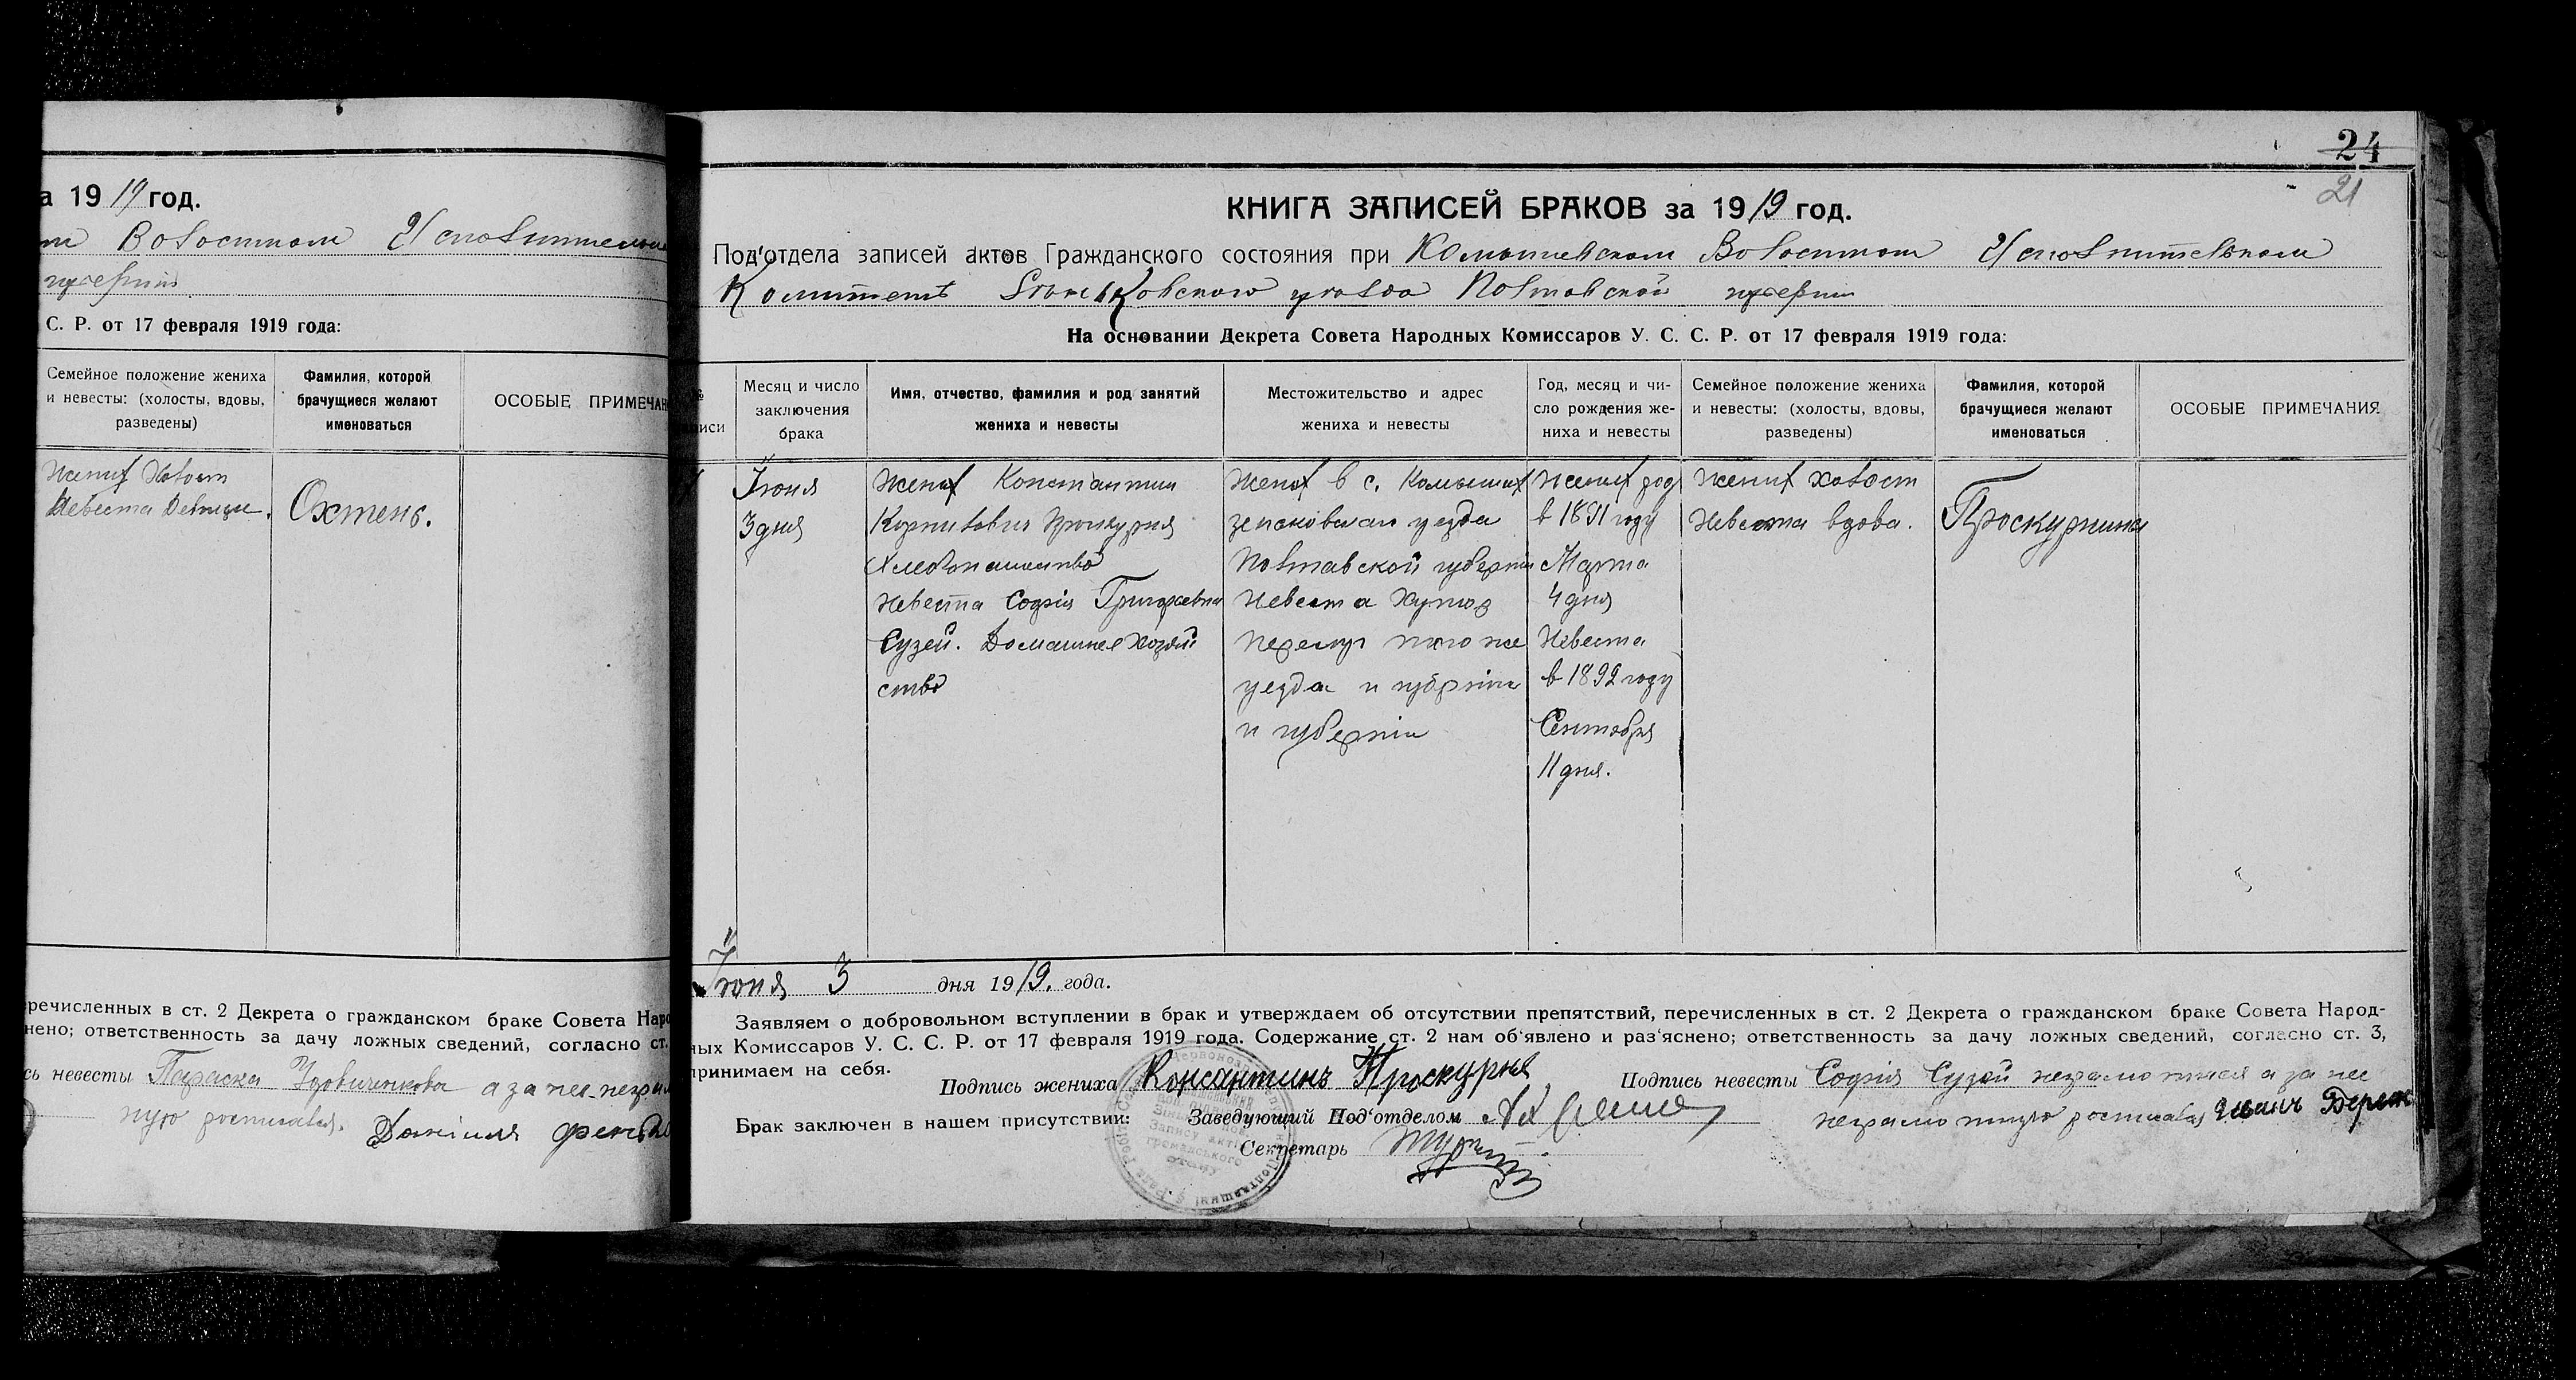 а 1919 год.
Волостном Исполнительном
губернии
С. Р. от 17 февраля 1919 года:
Семейное положение жениха и невесты: (холосты, вдовы, разведены)
Фамилия, которой брачущиеся желают именоваться
ОСОБЫЕ ПРИМЕЧАН
Жених Холост
Невеста Девица.
Охтень.
речисленных в ст. 2 Декрета о гражданском браке Совета Наро
нено; ответственность за дачу ложных сведений, согласно ст.
сь невесты Параска Удовиченкова а за нее негра
ную росписался. Даніилъ
24
21
КНИГА ЗАПИСЕЙ БРАКОВ за 1919 год.
Под'отдела записей актов Гражданского состояния при Комышевском Волостном Исполнительном
Комитете Зеньковского уезда Полтавской губернии
На основании Декрета Совета Народных Комиссаров У. С. С. Р. от 17 февраля 1919 года:
№ писи
Месяц и число заключения брака
Имя, отчество, фамилия и род занятий жениха и невесты
Местожительство и адрес жениха и невесты
Год, месяц и чи-
сло рождения же-
ниха и невесты
Семейное положение жениха и невесты: (холосты, вдовы, разведены)
Фамилия, которой брачущиеся желают именоваться
ОСОБЫЕ ПРИМЕЧАНИЯ
Июня
3 дня
Жених Константин
Корнилович Проскурня
Хлебопашество
Невеста Софія Григорьевна
Сузей. Домашнее хозяй
ство
Жених в с. Комышах
зеньковскаго уезда
Полтавской губернии
Невеста Хутор
того же
уезда и губрніи
и губерніи
Жених род
в 1891 году
Марта
4 дня
Невеста
в 1892 году
Сентября
11 дня.
Жених холост
Невеста вдова.
Проскурнины
Июня 3 дня 1919. года.
Заявляем о добровольном вступлении в брак и утверждаем об отсутствии препятствий, перечисленных в ст. 2 Декрета о гражданском браке Совета Народ-
ных Комиссаров У. С. С. Р. от 17 февраля 1919 года. Содержание ст. 2 нам об'явлено и раз'яснено; ответственность за дачу ложных сведений, согласно ст. 3,
принимаем на себя.
Подпись жениха Консантинъ Проскурня Подпись невесты Софія Сузей неграмотная а за нее
Брак заключен в нашем присутствии: Заведующий Под'отделом неграмотную росписался Иванъ
Секретарь